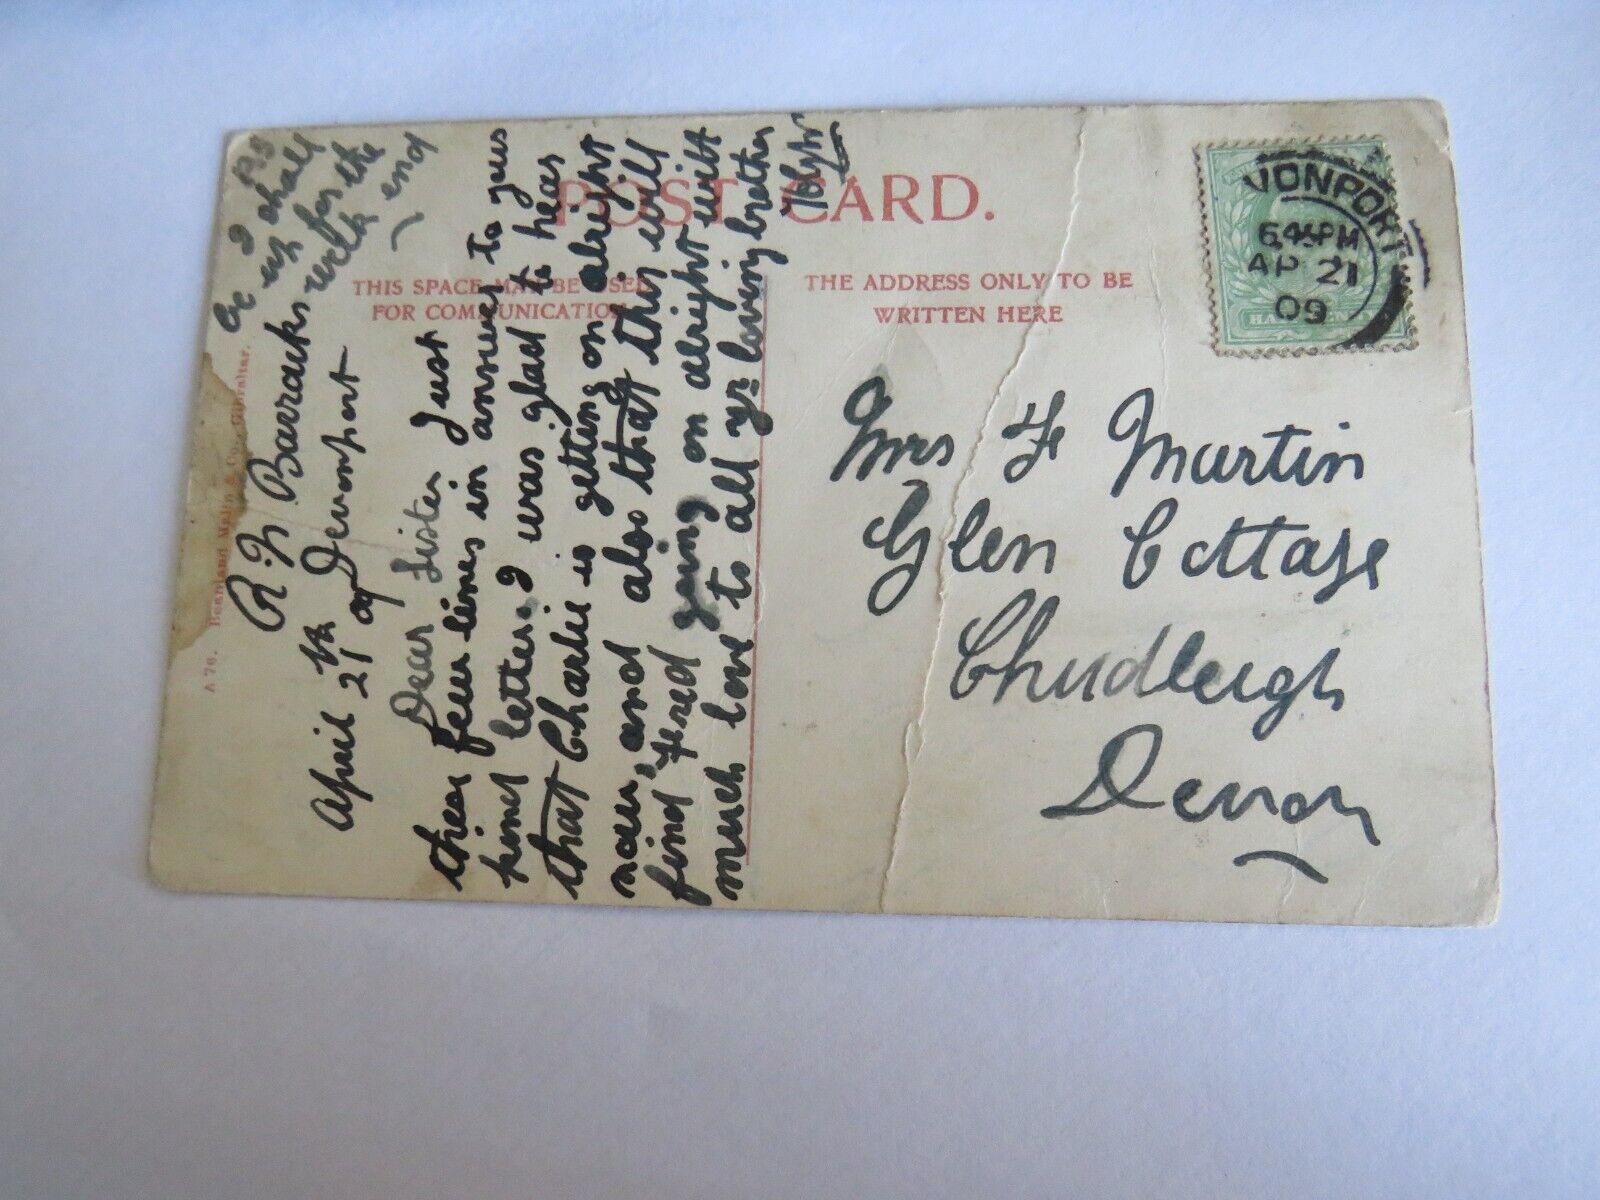 POST CARD.
THIS SPACE MAY BE USED
FOR COMMUNICATION
THE ADDRESS ONLY TO BE
WRITTEN HERE
A 76. Beanland Malin & Co., Gibraltar.
VONPORT
6 45 PM
AP 21
09
R. N Barracks
April 21 th 09 Devonport
Dear Sister Just
thies few lines in answer to yours
letter. I was glad to hear
that Charlie is getting on alright
now, and also that this will
find Fred going on alright wibt
much love to all yr. loving brother
PS
I shall
be up
for the
week end
Mrs F Martin
Glen Cottage
Chudleigh
Devon